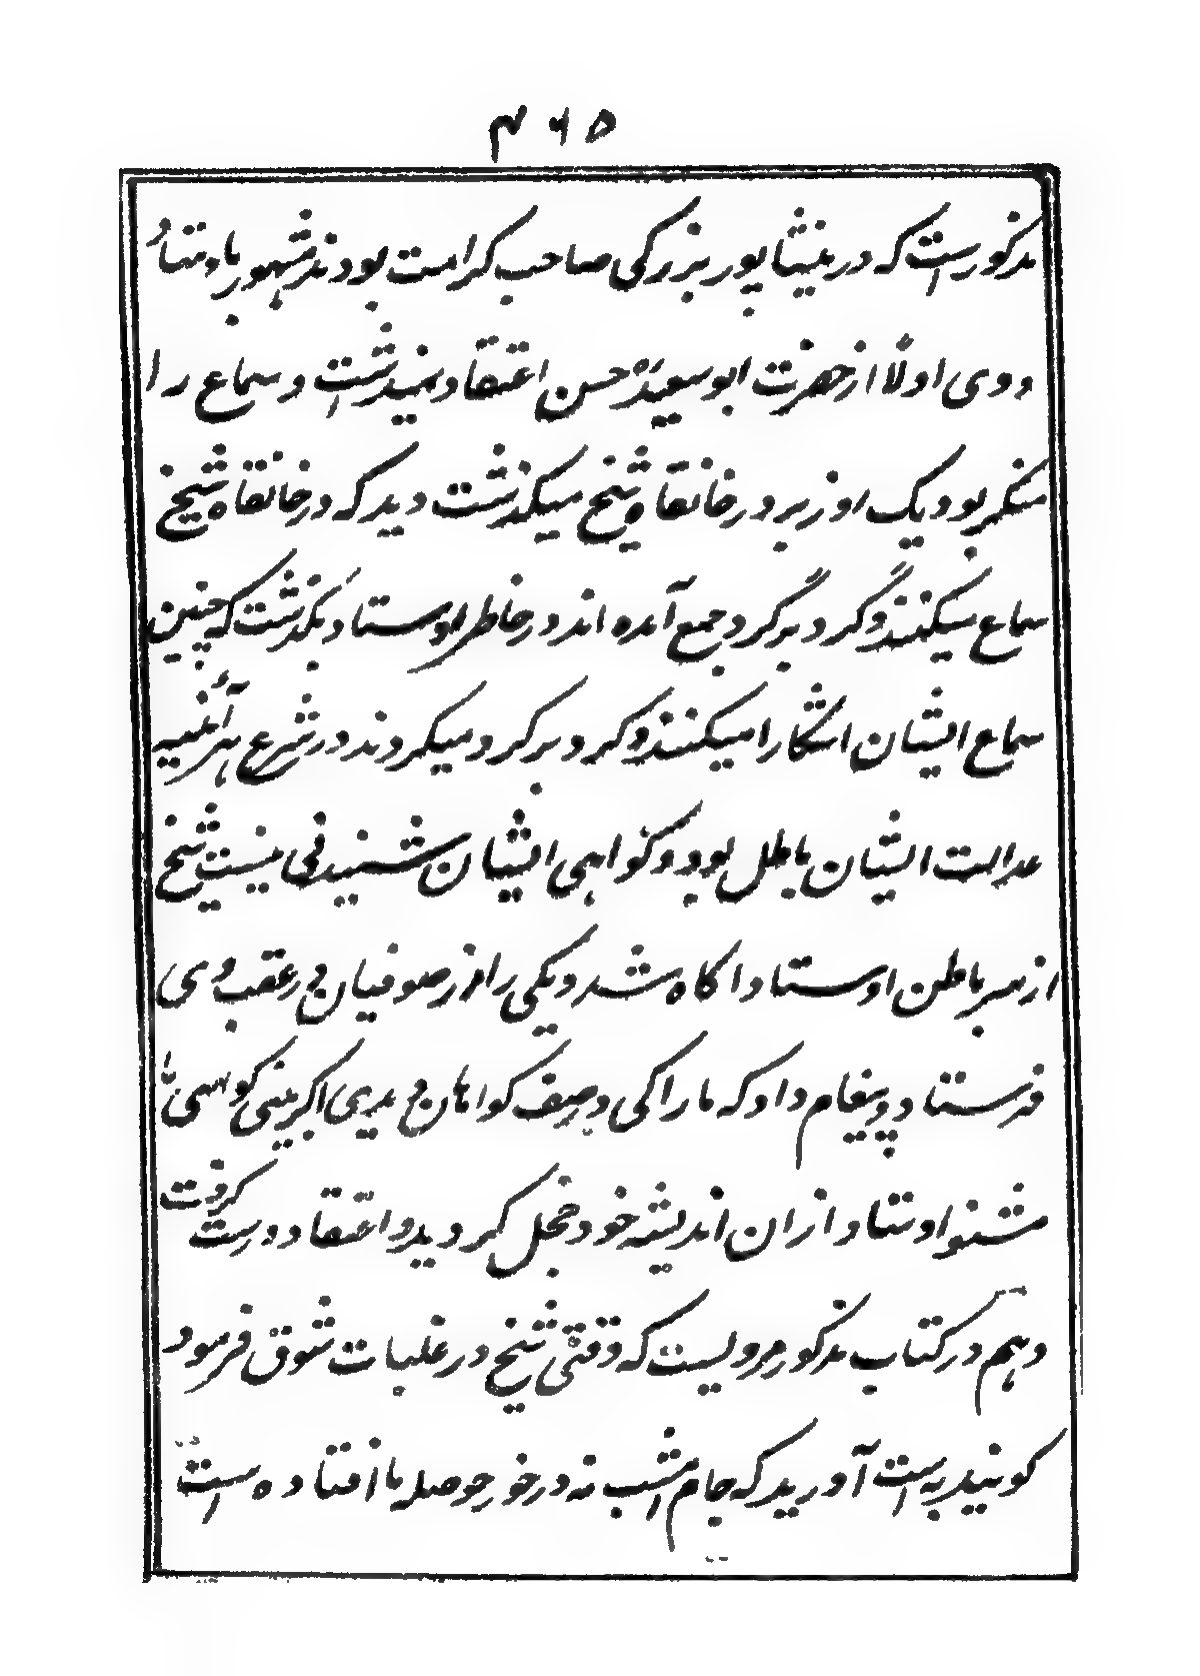 ۴۶۵
مذکورست که در نیشاپور بزرگی صاحب کرامت بودند مشهور باوستاد
ووی اولاً از حضرت ابوسعید حسن اعتقاد نمیداشت و سماع را
منکر بود یک روز بر در خانقاه شیخ میگذشت دید که در خانقاه شیخ
سماع میکنند و گرد برگرد جمع آمده اند در خاطر اوستاد بگذشت که چنین
سماع ایشان آشکارا میکنند و گرد برگرد میگردند در شرع هر آئینه
عدالت ایشان باطل بود و گواهی ایشان شنیدنی نیست شیخ
از سر باطن اوستاد اگاه شد و یکی را از صوفیان در عقب وی
فرستاد و پیغام داد که ما را کی در صف گواهان دیدی اگر بینی گواهی
مشنو اوستاد ازان اندیشه خود خجل گردید و اعتقاد درست گرفت
و هم در کتاب مذکور مرویست که وقتی شیخ در غلبات شوق فرمود
گویند بدست آورید که جام امشب نه در خور حوصله ما افتاده است